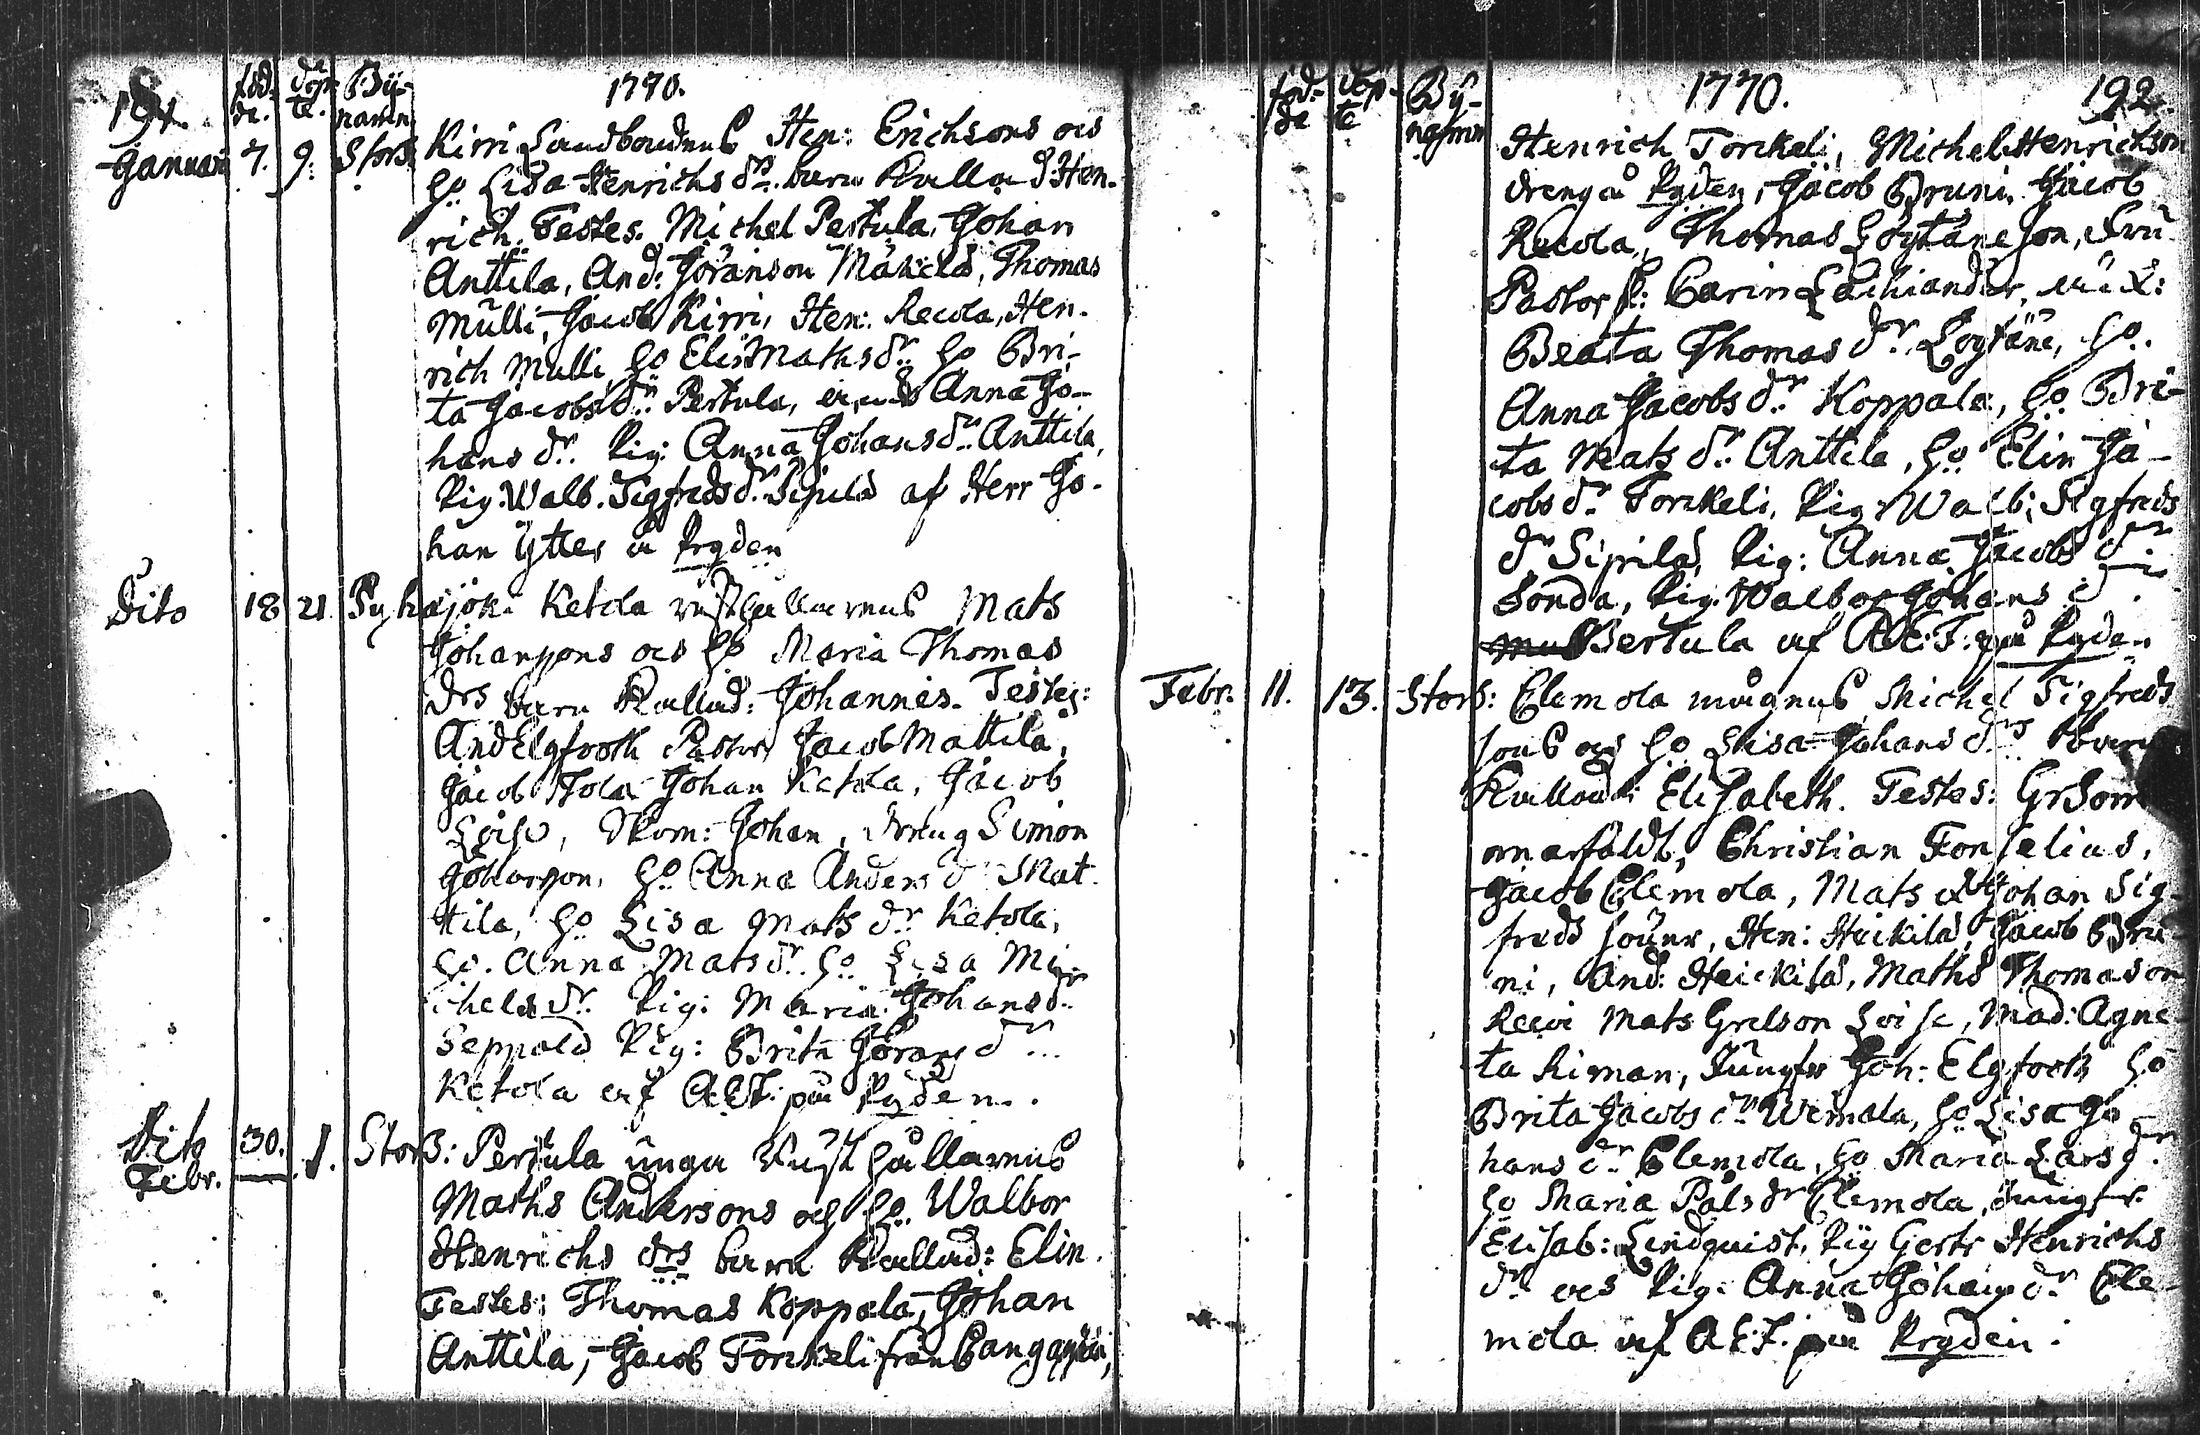 191. föd- de. döp te. By- namn 1770.
Januari 7. 9. StorB. Kirri Landboudens Hen: Erichsons och
ho Lisa Henrichs drs. barn Kallad: Hen-
rich. Testes. Michel Pertula, Johan
Anttila, And: Jöranson Mäkelä, Thomas
Mulli, Jacob Kirri, Hen: Recola, Hen-
rich Mulli, ho Elis Maths dr. ho Bri-
ta Jacobs dr. Pertula, Anna Jo-
hans dr. Pig: Anna Johans dr. Anttila,
Pig: Walb. Sigfreds dr. Sipilä af Herr Jo-
han Ytter å Kryden
Dito 18 21. Pyhäjok. Ketola rusthållarens Mats
Johanssons och ho Maria Thomas
drs barn Kallad: Johannes. Testes:
And Elgfooth Pastor, Jacob Mattila,
Jacob Tola Johan Ketola, Jacob
Loise, Skom: Johan, dreng Simon
Johansson, ho Anna Anders dr Mat-
tila, ho Lisa Mats dr Ketola,
ho. Anna Mats dr. ho Lisa Mi-
chels dr. Pig: Maria Johans dr.
Seppälä Pig: Brita Görans dr...
Ketola af A:E:F: på Kryden.
Dito Febr. 30. 1. StorB: Pertula unga Rusthållarens
Maths Andersons och ho. Walbor
Henrichs drs barn Kallad: Elin.
Testes: Thomas Koppala, Johan
Anttila, Jacob Torckeli från Cangapää,
föd- de döp- te By- namn 1770. 192.
Henrich Torckeli, Michel Henrichson
dreng å Kryden, Jacob Bruni, Jacob
Recola, Thomas Löytäne son, Fru
Pastor sk: Carin Lachiander,
Beata Thomas dr. Löytäne, ho.
Anna Jacobs dr Koppala, ho Bri-
ta Mats dr. Anttila, ho Elin Ja-
cobs dr Torckeli, Pig: Walb: Sigfreds
dr Sipilä, Pig: Anna Jacobs dr
Sonda, Pig. Walbor Johans dr.
Pertula af A:E:F: på Kryden
Febr. 11. 13. StorB: Elemola mågens Michel Sigfreds
sons och ho Lisa Johans drs barn
Kallad: Elisabeth. Testes: Gr Som
marfeldt, Christian Fonselius,
Jacob Elemola, Mats & Johan Sig-
freds söner, Hen: Heikilä, Jacob Bru
ni, And: Heickilä, Maths Thomason
Recoi Mats Grelson Loise, Mad: Agne
ta Riman, Jungfr Joh: Elgfooth ho
Brita Jacobs dr Wemala, ho Lisa Jo
hans dr Elemola, ho Maria Lars dr.
ho Maria Påls dr Elemola, Jungfr
Elisab: Lindquist, Pig Gertr Henrichs
dr och Pig: Anna Johans dr Ele-
mola af A:E:F. på Kryden.